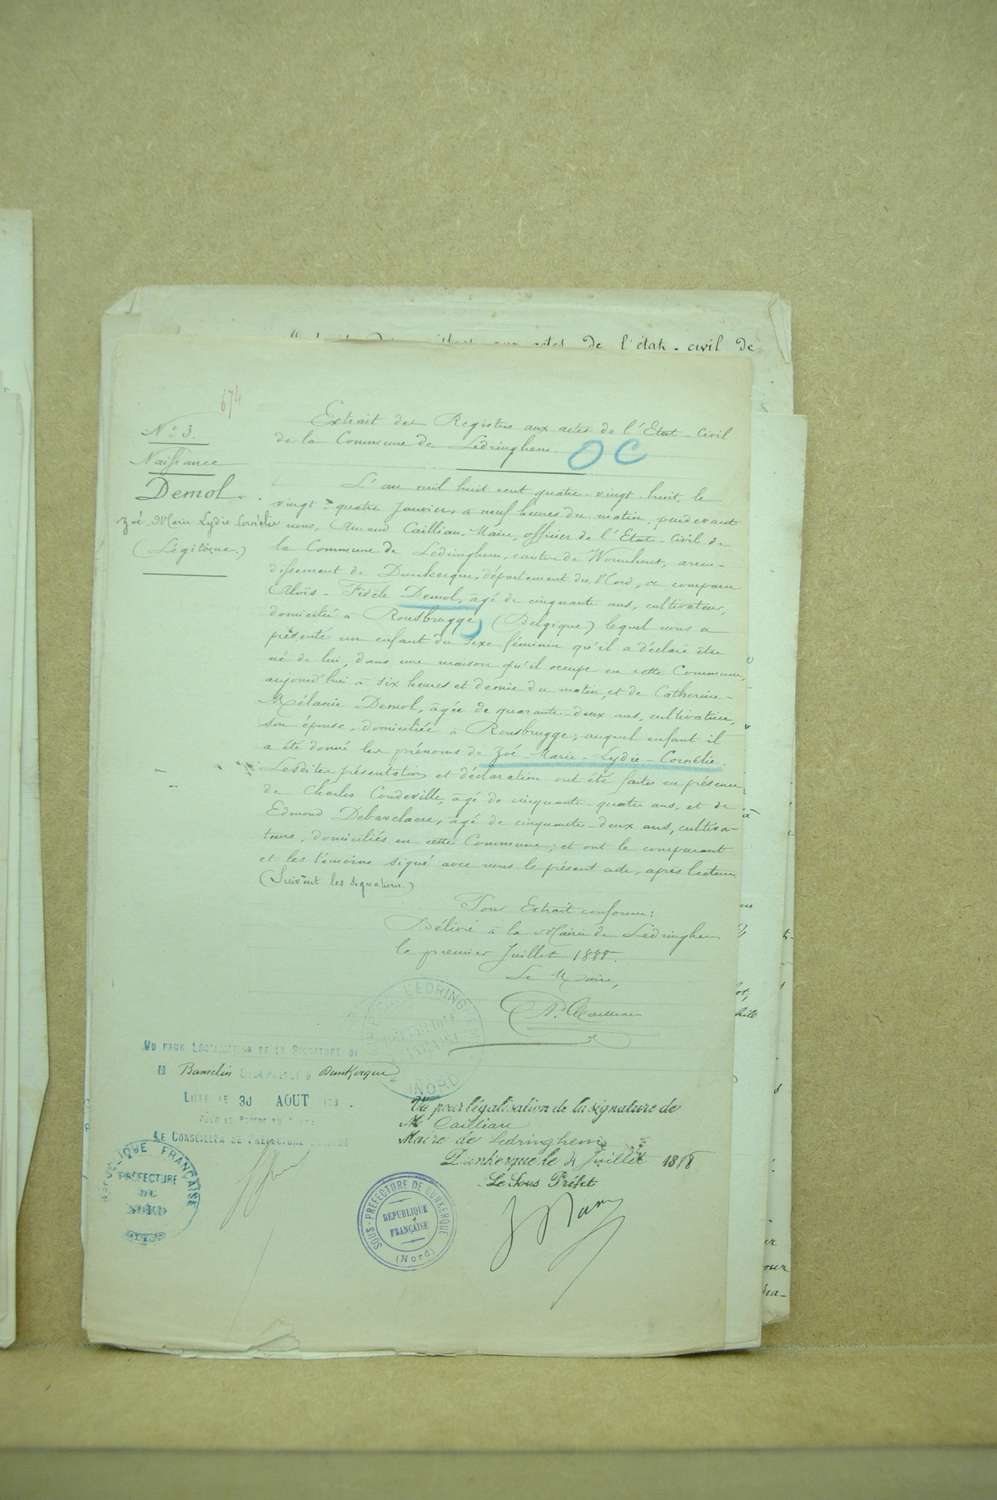 de l'état-civil de
674
Extrait des Registres aux actes de l'Etat-Civil
de la Commune de Ledringhem
OC
N° 3.
Naissance
Demol
Zoé Marie Lydie Cornélie
(Légitime)
L'an mil huit cent quatre-vingt-huit, le
vingt-quatre Janvier, à neuf heures du matin, pardevant
nous, Amand Cailliau, Maire, officier de l'Etat-Civil de
la Commune de Ledringhem, canton de Wormhout, arron-
dissement de Dunkerque, département du Nord, a comparu
Aloïs-Fidèle Demol, agé de cinquante ans, cultivateur,
domicilié à Rousbrugge (Belgique) lequel nous a
présenté un enfant du sexe féminin qu'il a déclaré être
né de lui, dans une maison qu'il occupe en cette Commune,
aujourd'hui à six heures et demie du matin, et de Catherine-
Mélanie Demol, agée de quarante-deux ans, cultivatrice,
son épouse, domiciliée à Rousbrugge; auquel enfant il
a été donné les prénoms de Zoé-Marie-Lydie-Cornélie.
Lesdites présentation et déclaration ont été faites en présence
de Charles Coudeville, agé de cinquante-quatre ans, et de
Edmond Debavelaere, agé de cinquante-deux ans, cultiva-
teurs, domiciliés en cette Commune; et ont le comparant
et les témoins signé avec nous le présent acte, après lecture
(Suivent les signatures)
Pour Extrait conforme:
Délivré à la Mairie de Ledringhem
le premier Juillet 1888.
Le Maire,
LEDRING
NORD
VU POUR LÉGALISATION DE LA SIGNATURE DE
M Bancelin Dunkerque
LILLE LE 30 AOUT
LE CONSEILLER DE PRÉFECTURE
RÉPUBLIQUE FRANÇAISE
PRÉFECTURE
DU
NORD
Vu pour légalisation de la signature de
M Cailliau
Maire de Ledringhem
Dunkerque le 4 Juillet 1888
Le Sous Préfet
SOUS-PRÉFECTURE DE DUNKERQUE
RÉPUBLIQUE
FRANÇAISE
(Nord)